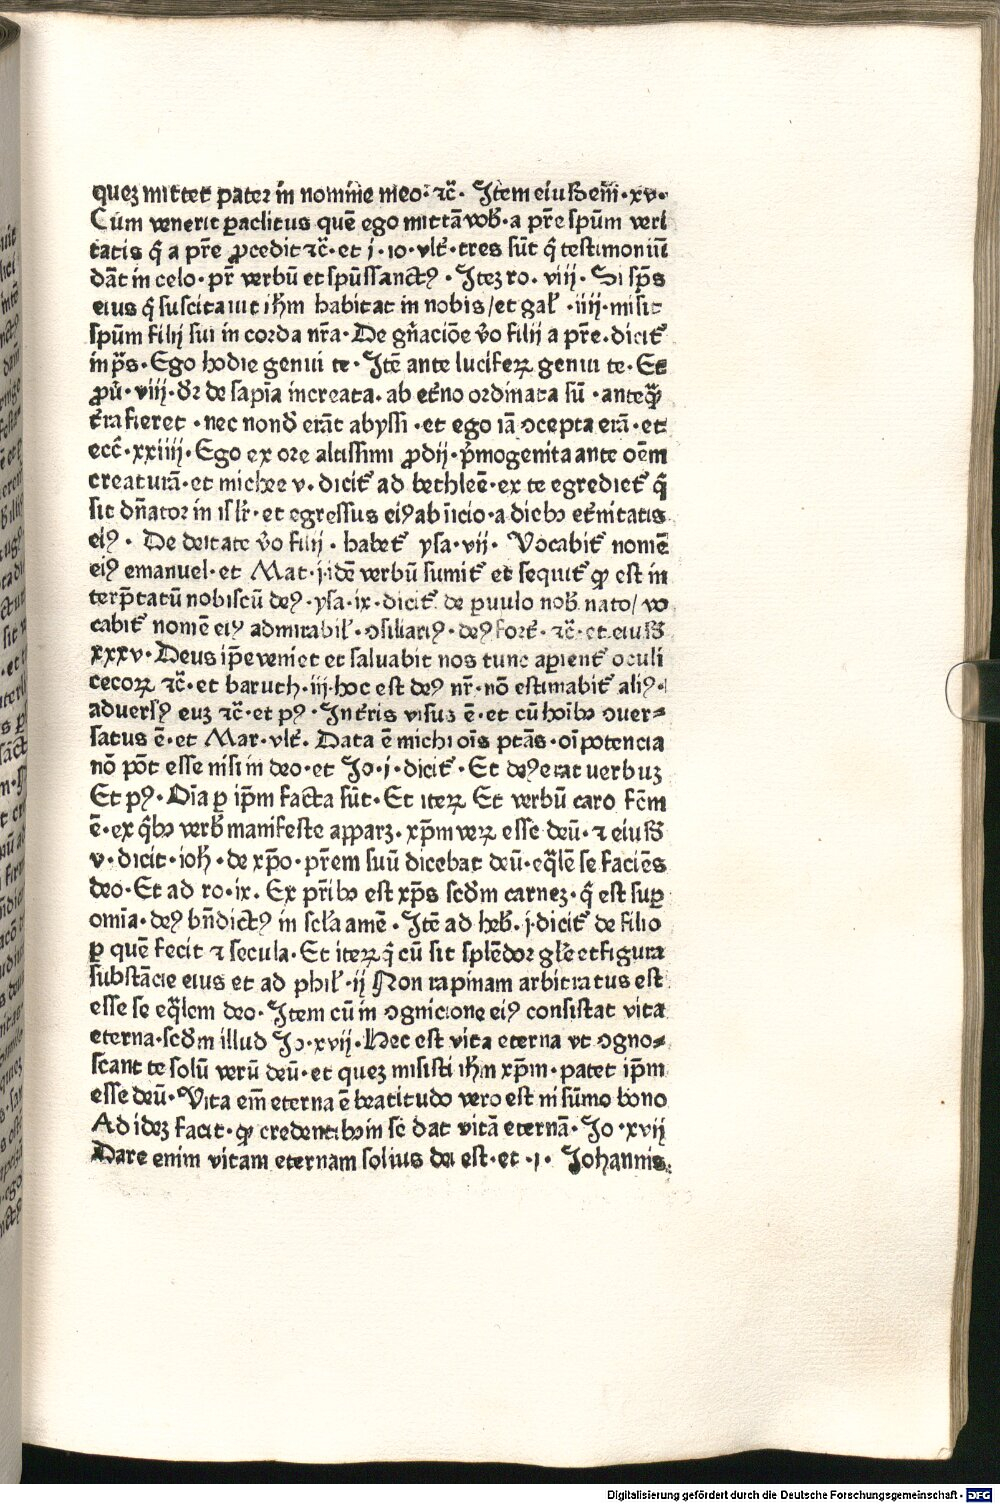 quez mittet pater in nomine meo· ⁊c̄· Item eiusdem̄·xv·
Cum venerit paclitus quē ego mittā vob̄·a pr̄e spūm veri
tatis q̄ a pr̄e ꝓcedit ⁊c̄·et j·io·vlt̄·tres sūt q̄ testimoniū
dāt in celo·pr̄ verbū et spūssanctꝰ·Itez ro·viii·Si sp̄s
eius q̄ suscitauit ihm̄ habitat in nobis/et gal̄·iiij·misit
spūm filij sui in corda nr̄a·De gn̄aciōe v̄o filij a pr̄e·dicit̄
in p̄s·Ego hodie genui te·Itē ante luciferꝝ genui te·Et
ꝓū·viii·dr̄ de sapīa increata·ab et̄no ordinata sū·anteq̄ꝫ
t̄ra fieret·nec nond̄ erāt abyssi·et ego iā ꝯcepta erā·et
ecc̄·xxiiij·Ego ex ore altissimi ꝓdij·p̄mogenita ante oēm
creaturā·et michee v·dicit̄ ad bethleē·ex te egrediet̄ q̄
sit dn̄ator in isl̄r·et egressus eiꝰ ab īicio·a diebꝫ et̄nitatis
eiꝰ·De deitate v̄o filij·habet̄ ysa·vii·Vocabit̄ nomē
eiꝰ emanuel·et Mat·j·idē verbū sumit̄ et sequit̄ ꝙ est in
terp̄tatū nobiscū deꝰ·ysa·ix·dicit̄ de puulo nob̄ nato/vo
cabit̄ nomē eiꝰ admirabil̄·ꝯsiliariꝰ·deꝰ fort̄·⁊c̄·et eiusd̄
xxxv·Deus ip̄e veniet et saluabit nos tunc apient̄ oculi
cecorꝝ ⁊c̄·et baruch·iij·hoc est deꝰ nr̄·nō estimabit̄ aliꝰ·
aduersꝰ euz ⁊c̄·et pꝰ·In t̄ris visus ē·et cū hoībꝫ ꝯuer⸗
satus ē·et Mar·vlt̄·Data ē michi oīs ptās·oīpotencia
nō pōt esse nisi in deo·et Jo·j·dicit̄·Et deꝰ erat uerbuz
Et pꝰ·Oīa ꝑ ip̄m facta sūt·Et iterꝝ Et verbū caro fc̄m
ē·ex q̄bꝫ verb̄ manifeste apparz·xp̄m verꝝ esse deū·⁊ eiusd̄
v·dicit·ioh̄·de xp̄o·pr̄em suū dicebat deū·eq̄lē se faciēs
deo·Et ad ro·ix·Ex pr̄ibꝫ est xp̄s scdm̄ carnez·q̄ est suꝑ
omīa·deꝰ bn̄dictꝰ in scl̄a amē·Itē ad heb̄·j·dicit̄ de filio
ꝑ quē fecit ⁊ secula·Et iterꝝ q̄ cū sit splēdor gl̄e et figura
substācie eius et ad phil̄·ij Non rapinam arbitratus est
esse se eq̄lem deo·Item cū in ꝯgnicione eiꝰ consistat vita
eterna·scdm̄ illud Jo·xvij·Hec est vita eterna vt ꝯgno⸗
scant te solū verū deū·et quez misisti ihm̄ xp̄m·patet ip̄m
esse deū·Vita em̄ eterna ē beatitudo vero est ni sūmo bono
Ad idez facit·ꝙ credentibꝫ in se dat vitā eternā·Jo·xvij
Dare enim vitam eternam solius dei est·et·i·Johannis
Digitalisierung gefördert durch die Deutsche Forschungsgemeinschaft - DFG